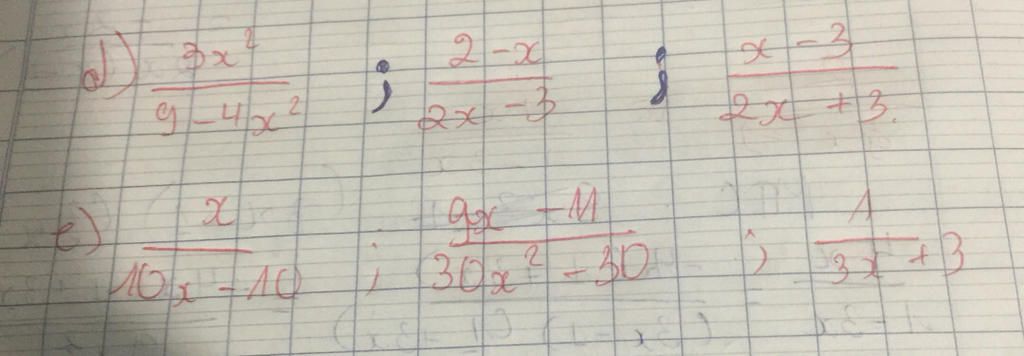 d) 3x² / 9 - 4x² ; 2 - x / 2x - 3 ; x - 3 / 2x + 3.
e) x / 10x - 10 ; 9x - 11 / 30x² - 30 ; 1 / 3x + 3